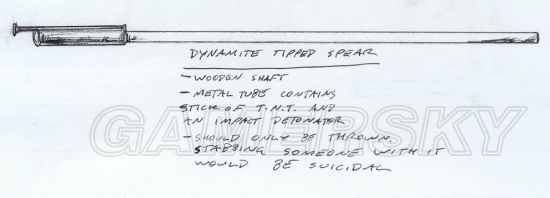 DYNAMITE TIPPED SPEAR
- WOODEN SHAFT
- METAL TUBE CONTAINS
STICK OF T.N.T. AND
AN IMPACT DETONATOR
- SHOULD ONLY BE THROWN.
STABBING SOMEONE WITH IT
WOULD BE SUICIDAL
GAMERSKY